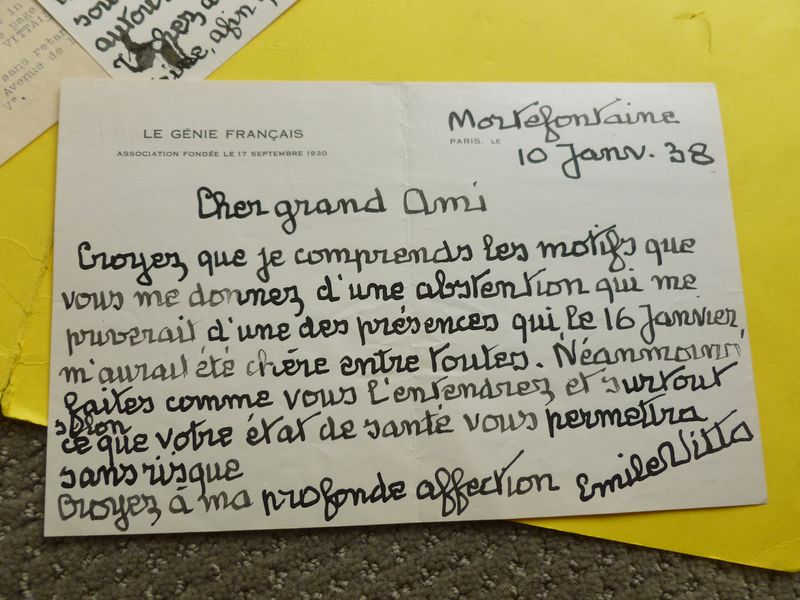 in
page
VITTA
sans retar
Avenue de
Vᵉ.
sou
autor
chez
afin
LE GÉNIE FRANÇAIS
ASSOCIATION FONDÉE LE 17 SEPTEMBRE 1930
Mortefontaine
PARIS, LE
10 Janv. 38
Cher grand Ami
Croyez que je comprends les motifs que
vous me donnez d'une abstention qui me
priverait d'une des présences qui, le 16 Janvier,
m'aurait été chère entre toutes. Néanmoins,
faites comme vous l'entendrez et surtout
selon
ce que votre état de santé vous permettra
sans risque
Croyez à ma profonde affection Emile Vitta